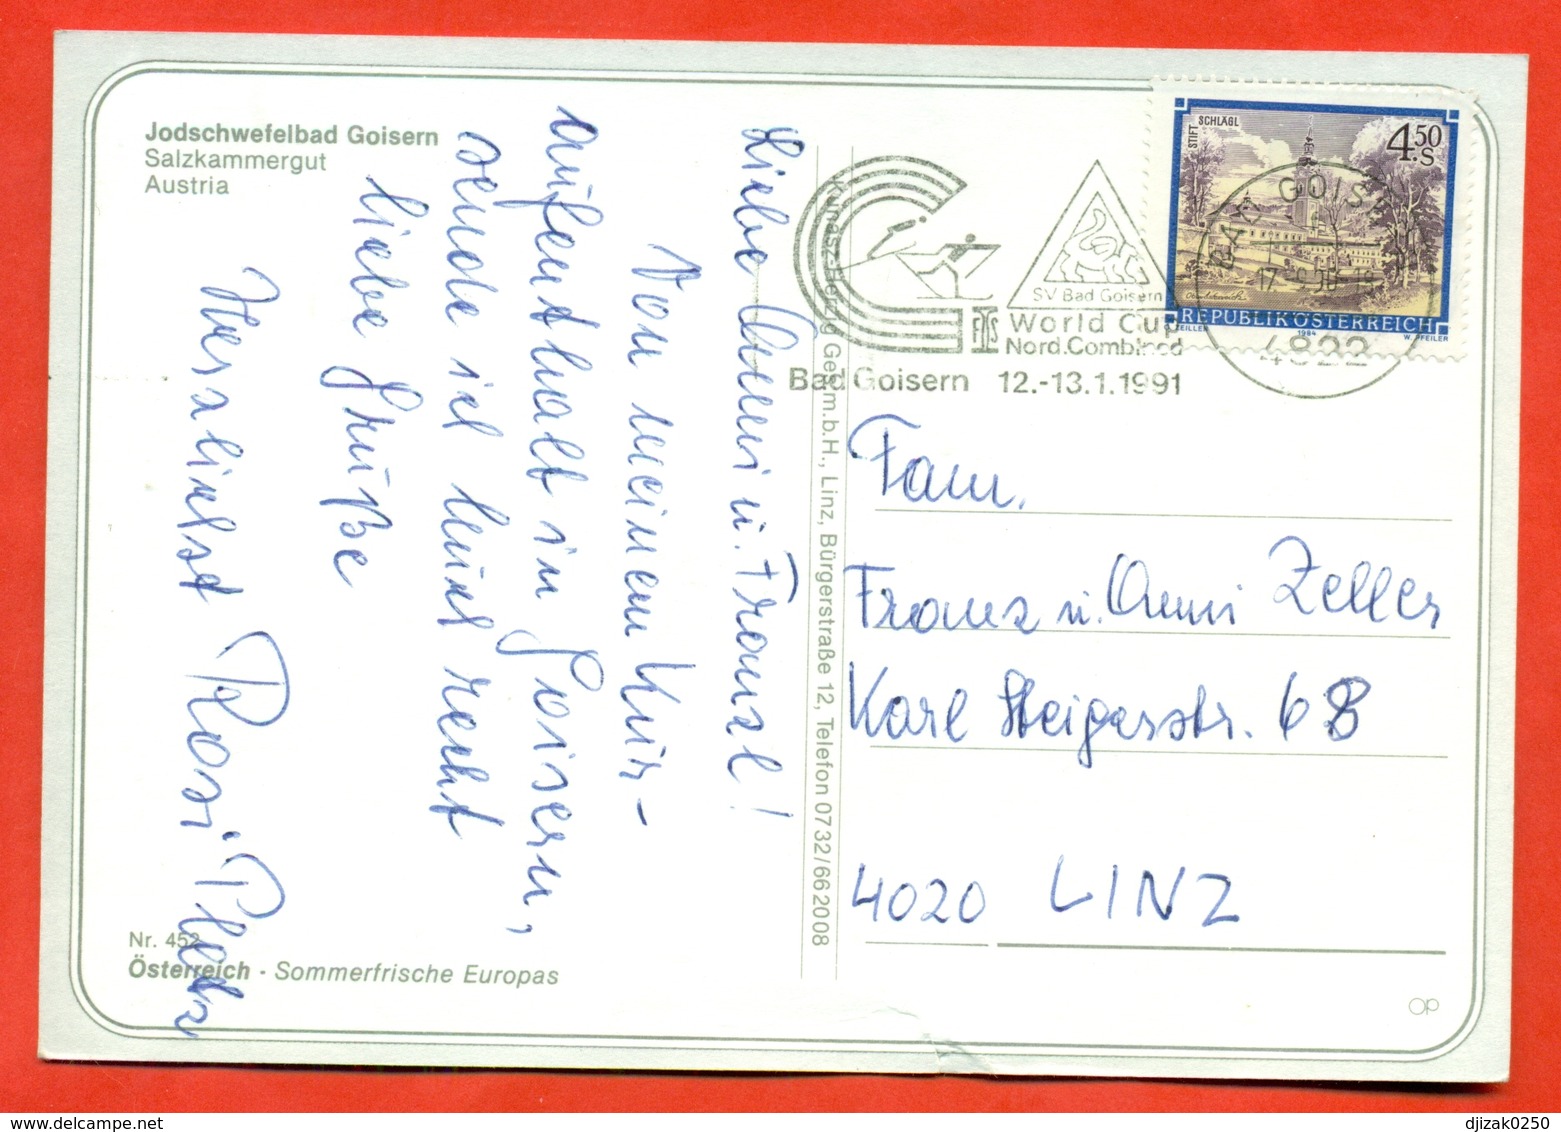 Jodschwefelbad Goisern
Salzkammergut
Austria
Liebe Anni u. Franzl!
Von meinem Kur-
aufenthalt in Goisern,
sende ich Euch recht
liebe Grüße
Herzlichst Rosi
Nr. 452
Österreich · Sommerfrische Europas
Kunesz-Herzig Ges.m.b.H., Linz, Bürgerstraße 12, Telefon 0732/662008
SV Bad Goisern
FIS
World Cup
Nord.Combined
Bad Goisern 12.-13.1.1991
STIFT SCHLÄGL
4.50
S
REPUBLIK ÖSTERREICH
ZEILLER 1984 W. PFEILER
BAD GOISERN
4822
Fam.
Franz u. Anni Zeller
Karl Steigerstr. 68
4020 LINZ
OP
djizak0250